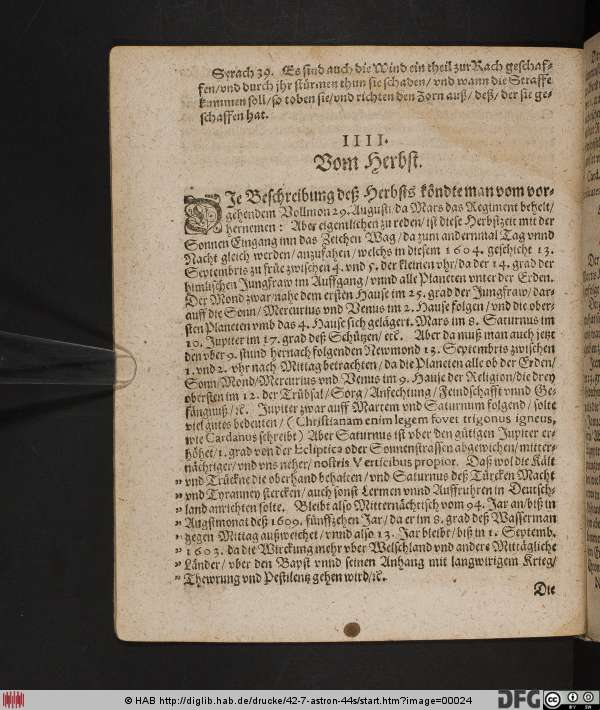 Syrach 39. Es sind auch die Wind ein theil zur Rach geschaf-
fen/vnd durch jhr stürmen thun sie schaden/ vnd wann die Straffe
kommen soll/ so toben sie/vnd richten den Zorn auß/ deß/ der sie ge-
schaffen hat.
IIII.
Vom Herbst.
DIe Beschreibung deß Herbsts köndte man vom vor-
gehendem Vollmon 29. Augusti/ da Mars das Regiment behelt/
hernemen: Aber eigentlichen zu reden/ ist diese Herbstzeit mit der
Sonnen Eingang inn das Zeichen Wag/ da zum andernmal Tag vnnd
Nacht gleich werden/ anzufahen/ welchs in diesem 1604. geschicht 13.
Septembris zu früe zwischen 4. vnd 5. der kleinen vhr/ da der 14. grad der
himlischen Jungfraw im Auffgang/ vnnd alle Planeten vnter der Erden.
Der Mond zwar nahe dem ersten Hause im 25. grad der Jungfraw/ dar-
auff die Sonn/ Mercurius vnd Venus im 2. Hause folgen/ vnd die ober-
sten Planeten vmb das 4. Hause sich gelägert. Mars im 8. Saturnus im
10. Jupiter im 17. grad deß Schützen/ etc. Aber da muß man auch jetzt
den vber 9. stund hernach folgenden Newmond 13. Septembris zwischen
1. vnd 2. vhr nach Mittag betrachten/ da die Planeten alle ob der Erden/
Sonn/ Mond/ Mercurius vnd Venus im 9. Hause der Religion/ die drey
obersten im 12. der Trübsal/ Sorg/ Anfechtung/ Feindschafft vnnd Ge-
fängnuß/ ꝛc. Jupiter zwar auff Martem vnd Saturnum folgend/ solte
viel gutes bedeuten/ (Christianam enim legem fovet trigonus igneus,
wie Cardanus schreibt) Aber Saturnus ist vber den gütigen Jupiter er-
höhet/ 1. grad von der Ecliptica oder Sonnenstrassen abgewichen/ mitter-
nächtiger/ vnd vns neher/ nostris Verticibus propior. Daß wol die Kält
" vnd Trückne die oberhand behalten/ vnd Saturnus deß Türcken Macht
" vnd Tyranney stercken/ auch sonst Lermen vnnd Auffruhren in Deutsch-
" land anrichten solte. Bleibt also Mitternächtisch vom 94. Jar an/ biß in
" Augstmonat deß 1609. fünffzehen Jar/ da er im 8. grad deß Wasserman
" gegen Mittag außweichet/ vnnd also 13. Jar bleibt/ biß in 1. Septemb.
" 1603. da die Wirckung mehr vber Welschland vnd andere Mittägliche
" Länder/ vber den Bapst vnnd seinen Anhang mit langwirigem Krieg/
" Thewrung vnd Pestilentz gehen wird/ ꝛc.
Die
© HAB http://diglib.hab.de/drucke/42-7-astron-44s/start.htm?image=00024
DFG
cc BY SA